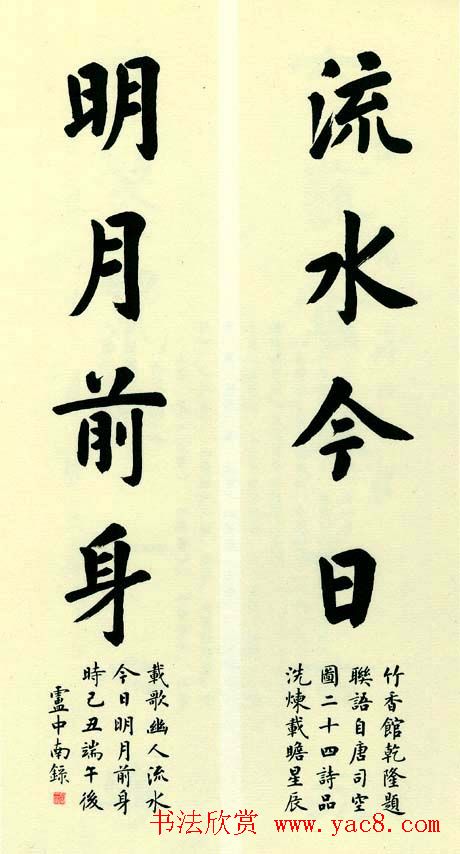 流水今日
竹香館乾隆題
聯語自唐司空
圖二十四詩品
洗煉載瞻星辰
明月前身
載歌幽人流水
今日明月前身
時己丑端午後
盧中南錄
书法欣赏 www.yac8.com